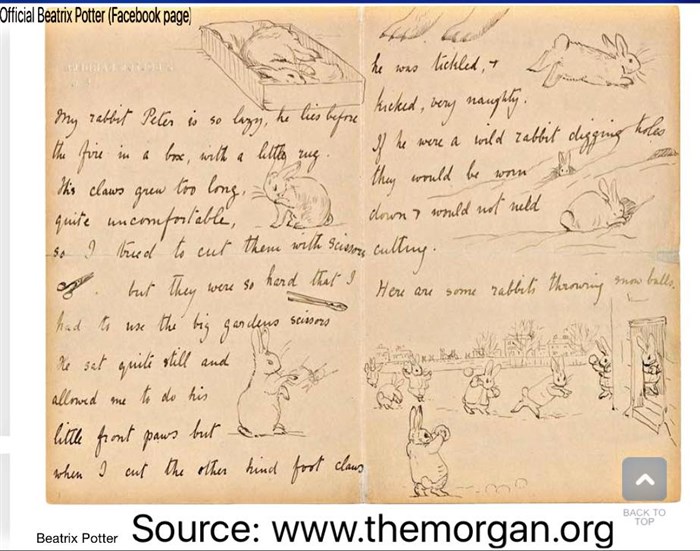 Official Beatrix Potter (Facebook page)
My rabbit Peter is so lazy, he lies before
the fire in a box, with a little rug.
His claws grew too long,
quite uncomfortable,
so I tried to cut them with scissors
but they were so hard that I
had to use the big gardens scissors
He sat quite still and
allowed me to do his
little front paws but
when I cut the other hind foot claws
he was tickled, &
kicked, very naughty.
If he were a wild rabbit digging holes
they would be worn
down & would not need
cutting.
Here are some rabbits throwing snow balls.
BACK TO
TOP
Beatrix Potter
Source: www.themorgan.org